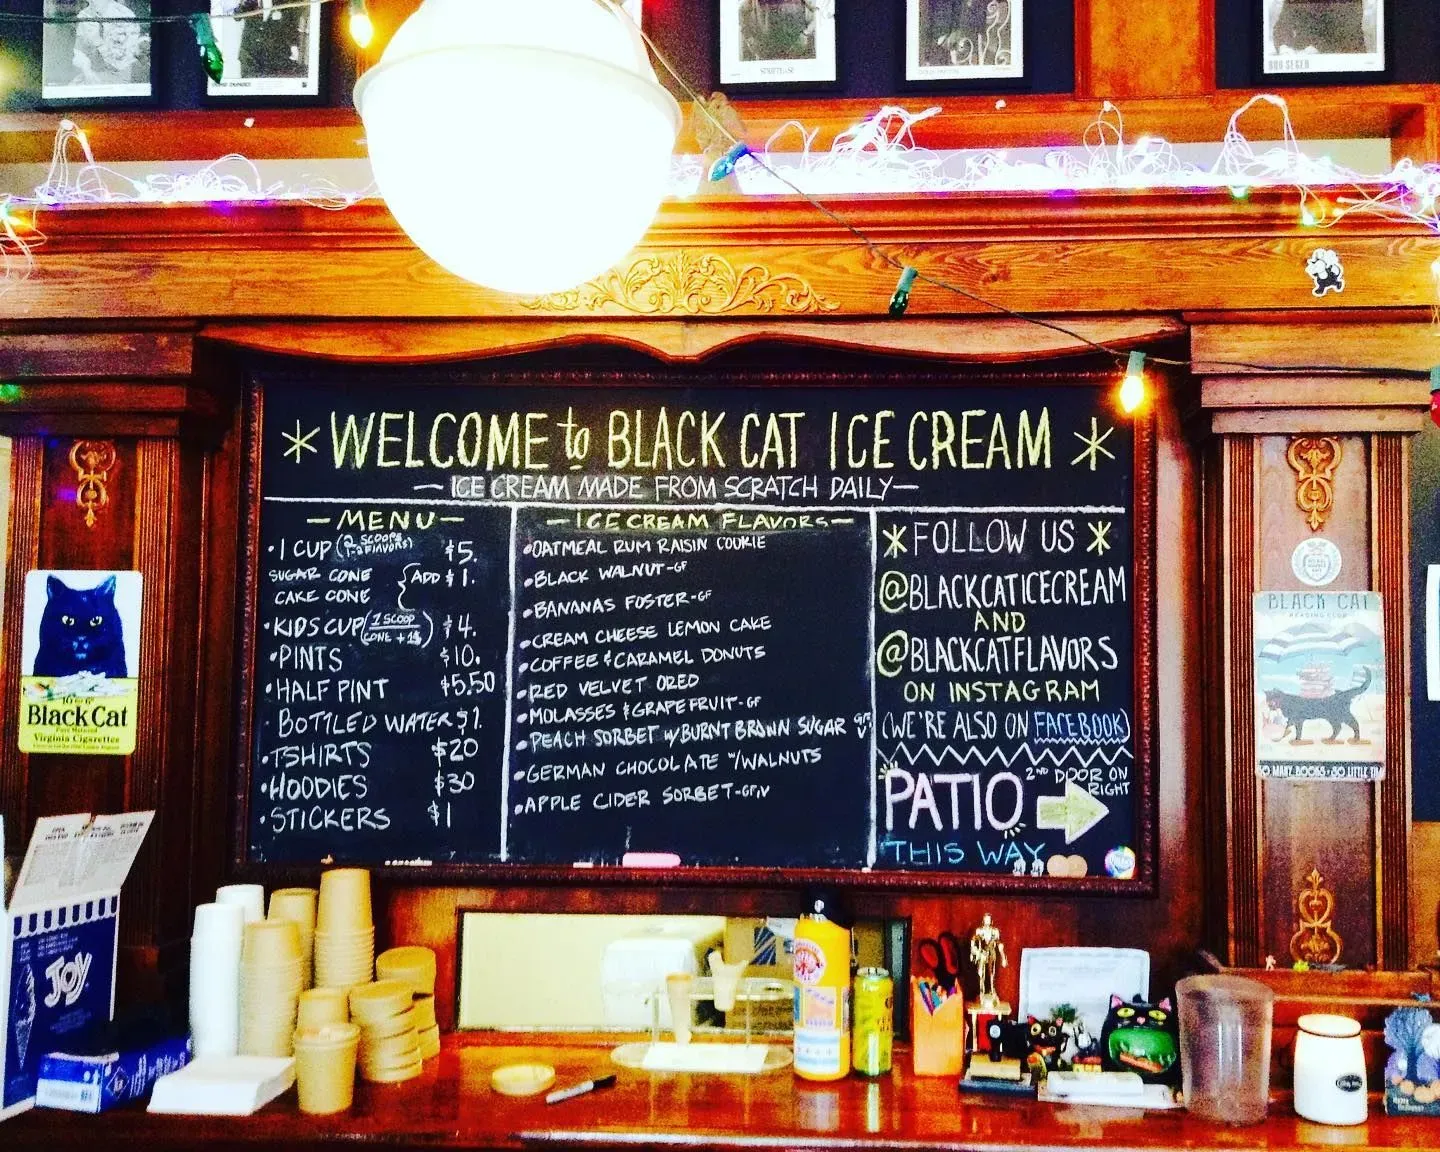 BOB SEGER
* WELCOME to BLACK CAT ICE CREAM *
— ICE CREAM MADE FROM SCRATCH DAILY —
— MENU —
• 1 CUP (2 SCOOPS 1-2 FLAVORS) $5.
SUGAR CONE
CAKE CONE { ADD $1.
• KIDS CUP (1 SCOOP CONE + 1$) $4.
• PINTS $10.
• HALF PINT $5.50
BOTTLED WATER $1.
• TSHIRTS $20
• HOODIES $30
• STICKERS $1
— ICE CREAM FLAVORS —
• OATMEAL RUM RAISIN COOKIE
• BLACK WALNUT-GF
• BANANAS FOSTER-GF
• CREAM CHEESE LEMON CAKE
• COFFEE & CARAMEL DONUTS
• RED VELVET OREO
• MOLASSES & GRAPEFRUIT-GF
• PEACH SORBET W/BURNT BROWN SUGAR GF, V
• GERMAN CHOCOLATE W/WALNUTS
• APPLE CIDER SORBET-GF,V
* FOLLOW US *
@BLACKCATICECREAM
AND
@BLACKCATFLAVORS
ON INSTAGRAM
(WE'RE ALSO ON FACEBOOK)
PATIO 2ND DOOR ON RIGHT
THIS WAY
Black Cat
Virginia Cigarettes
BLACK CAT
READING CLUB
SO MANY BOOKS • SO LITTLE TIME
JOY